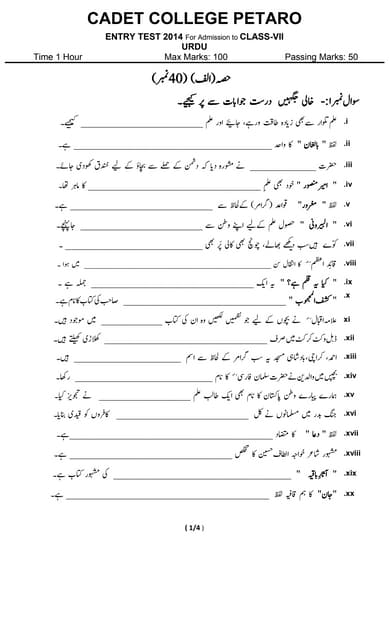 CADET COLLEGE PETARO
ENTRY TEST 2014 For Admission to CLASS-VII
URDU
Time 1 Hour Max Marks: 100 Passing Marks: 50
حصہ (الف) (40 نمبر)
سوال نمبر۱:- خالی جگہیں درست جوابات سے پر کیجیے۔
i. علم تلوار سے بھی زیادہ طاقت ور ہے، جائیے اور علم ____________ کیجیے۔
ii. لفظ " بالغان " کا واحد ____________ ہے۔
iii. حضرت ____________ نے مشورہ دیا کہ دشمن کے حملے سے بچاؤ کے لیے خندق کھودی جائے۔
iv. " امیر منصور " خود بھی علم ____________ کا ماہر تھا۔
v. لفظ " مغرور " قواعد (گرامر) کے لحاظ سے ____________ ہے۔
vi. " البیرونی " حصول علم کے لیے اپنے وطن سے ____________ جا پہنچے۔
vii. کوّے ہیں سب دیکھے بھالے، چونچ بھی کالی پَر بھی ____________ ۔
viii. قائد اعظمؒ کا انتقال سن ____________ میں ہوا ۔
ix. " کیا یہ قلم ہے؟ " یہ ایک ____________ جملہ ہے ۔
x. " کشف المحجوب " ____________ صاحب کی کتاب کا نام ہے۔
xi علامہ اقبالؒ نے بچوں کے لیے جو نظمیں لکھیں وہ ان کی کتاب ____________ میں موجود ہیں۔
xii. ڈبل وکٹ کرکٹ میں صرف ____________ کھلاڑی کھیلتے ہیں۔
xiii. احمد، کراچی، بادشاہی مسجد یہ سب گرامر کے لحاظ سے اسم ____________ ہیں۔
xiv. بچپن میں والدین نے حضرت سلمان فارسیؓ کا نام ____________ رکھا۔
xv. ہمارے پیارے وطن پاکستان کا نام بھی ایک طالب علم ____________ نے تجویز کیا۔
xvi. جنگ بدر میں مسلمانوں نے کل ____________ کافروں کو قیدی بنایا۔
xvii. لفظ " دعا " کا متضاد ____________ ہے۔
xviii. مشہور شاعر خواجہ الطاف حسین کا تخلص ____________ ہے۔
xix. " آثار باقیہ " ____________ کی مشہور کتاب ہے ۔
xx. "جان" کا ہم قافیہ لفظ ____________ ہے۔
( 1/4 )